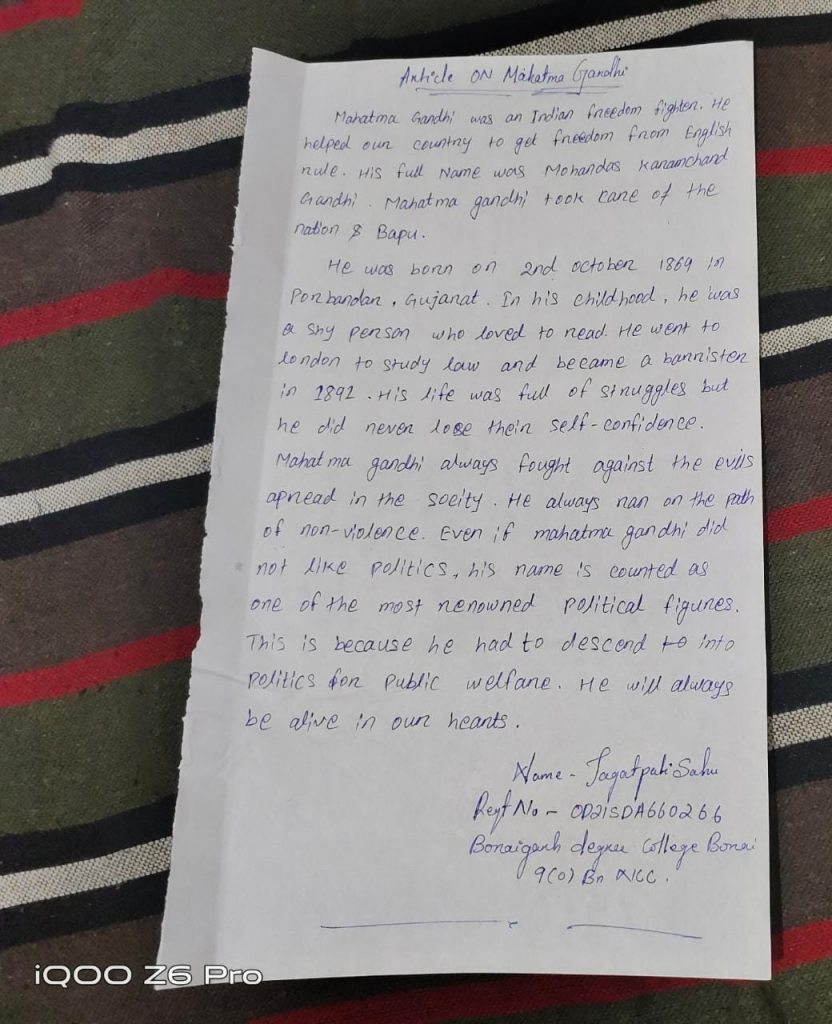 Article ON Mahatma Gandhi
Mahatma Gandhi was an Indian freedom fighter. He
helped our country to get freedom from English
rule. His full Name was Mohandas Karamchand
Gandhi. Mahatma gandhi took care of the
nation & Bapu.
He was born on 2nd october 1869 in
Porbandar, Gujarat. In his childhood, he was
a shy person who loved to read. He went to
london to study law and became a barrister
in 1891. His life was full of struggles but
he did never lose their self-confidence.
Mahatma gandhi always fought against the evils
apread in the socity. He always ran on the path
of non-violence. Even if mahatma gandhi did
not like politics, his name is counted as
one of the most renowned political figures.
This is because he had to descend to into
politics for public welfare. He will always
be alive in our hearts.
Name - Jagatpati Sahu
Regt No - OD21SDA660266
Bonaigarh degree College Bonai
9(O) Bn NCC.
iQOO Z6 Pro